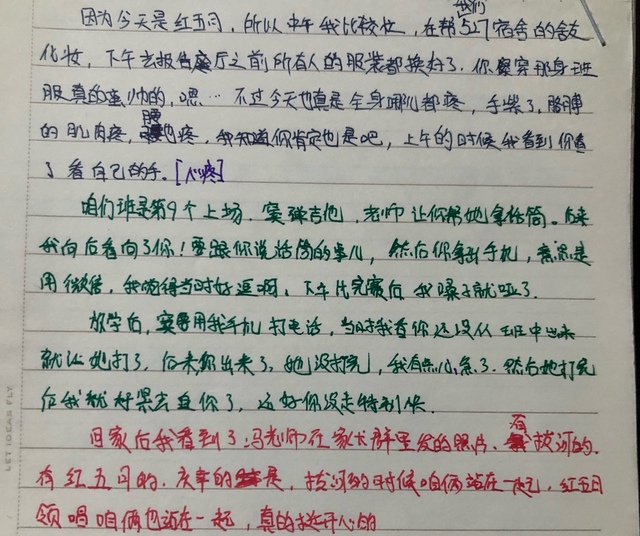 因为今天是红五月，所以中午我比较忙，在帮我们527宿舍的舍友
化妆，下午去报告厅之前所有人的服装都换好了。你穿那身班
服真的蛮帅的，嗯… 不过今天也真是全身哪儿都疼，手紫了，胳膊
的肌肉疼，腰也疼，我知道你肯定也是吧，上午的时候我看到你看
了看自己的手。[心疼]
咱们班是第9个上场，窦弹吉他，老师让你帮她拿话筒。后来
我向后看向了你！要跟你说话筒的事儿，然后你拿出手机，意思是
用微信，我觉得当时好逗啊，下午比完赛后我嗓子就哑了。
放学后，窦要用我手机打电话，当时我看你还没从班中出来
就让她打了，后来你出来了，她没打完，我有点儿急了。然后她打完
后我就赶紧去追你了，还好你没走特别快。
回家后我看到了冯老师在家长群里发的照片、有拔河的，
有红五月的。庆幸的是，拔河的时候咱俩站在一起，红五月
领唱咱俩也站在一起，真的挺开心的
LET IDEAS FLY